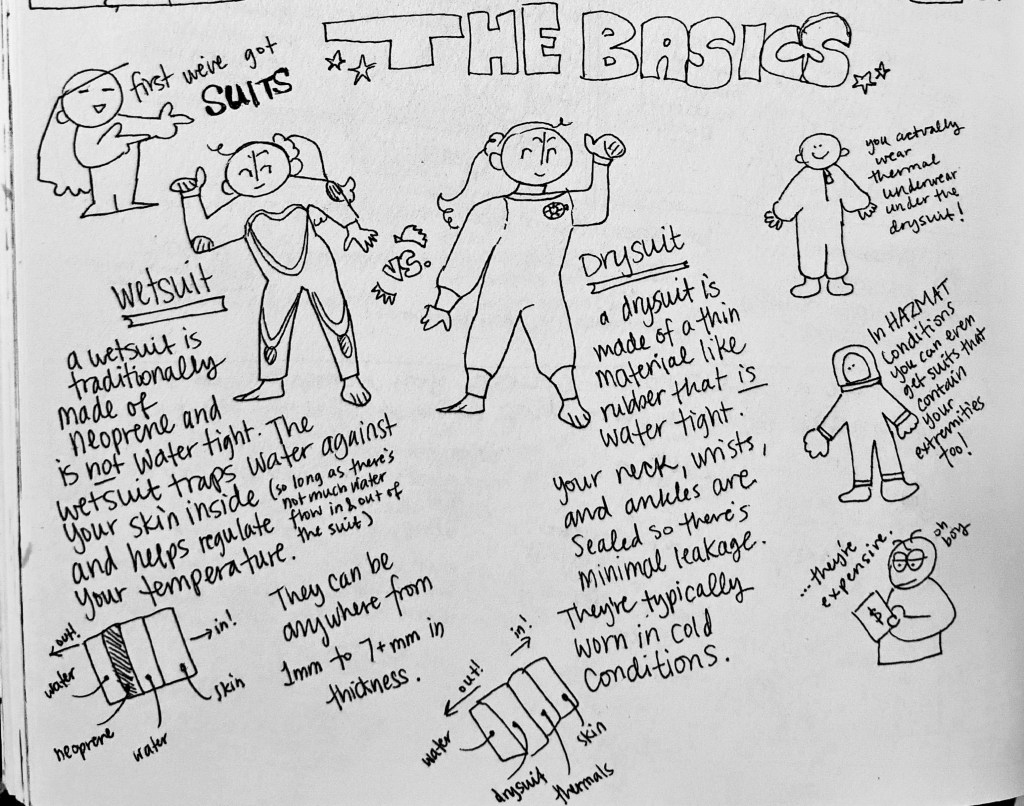 THE BASICS
first we've got
SUITS
wetsuit
a wetsuit is
traditionally
made of
neoprene and
is not water tight. The
wetsuit traps water against
your skin inside (so long as there's
not much water
flow in & out of
the suit)
and helps regulate
your temperature.
out!
in!
water
neoprene
water
skin
They can be
anywhere from
1mm to 7+mm in
thickness.
VS.
Drysuit
a drysuit is
made of a thin
material like
rubber that is
water tight.
your neck, wrists,
and ankles are
sealed so there's
minimal leakage.
They're typically
worn in cold
conditions.
out!
in!
water
drysuit
thermals
skin
you actually
wear
thermal
underwear
under the
drysuit!
In HAZMAT
conditions
you can even
get suits that
contain
your
extremities
too!
...they're
expensive.
oh
boy
$